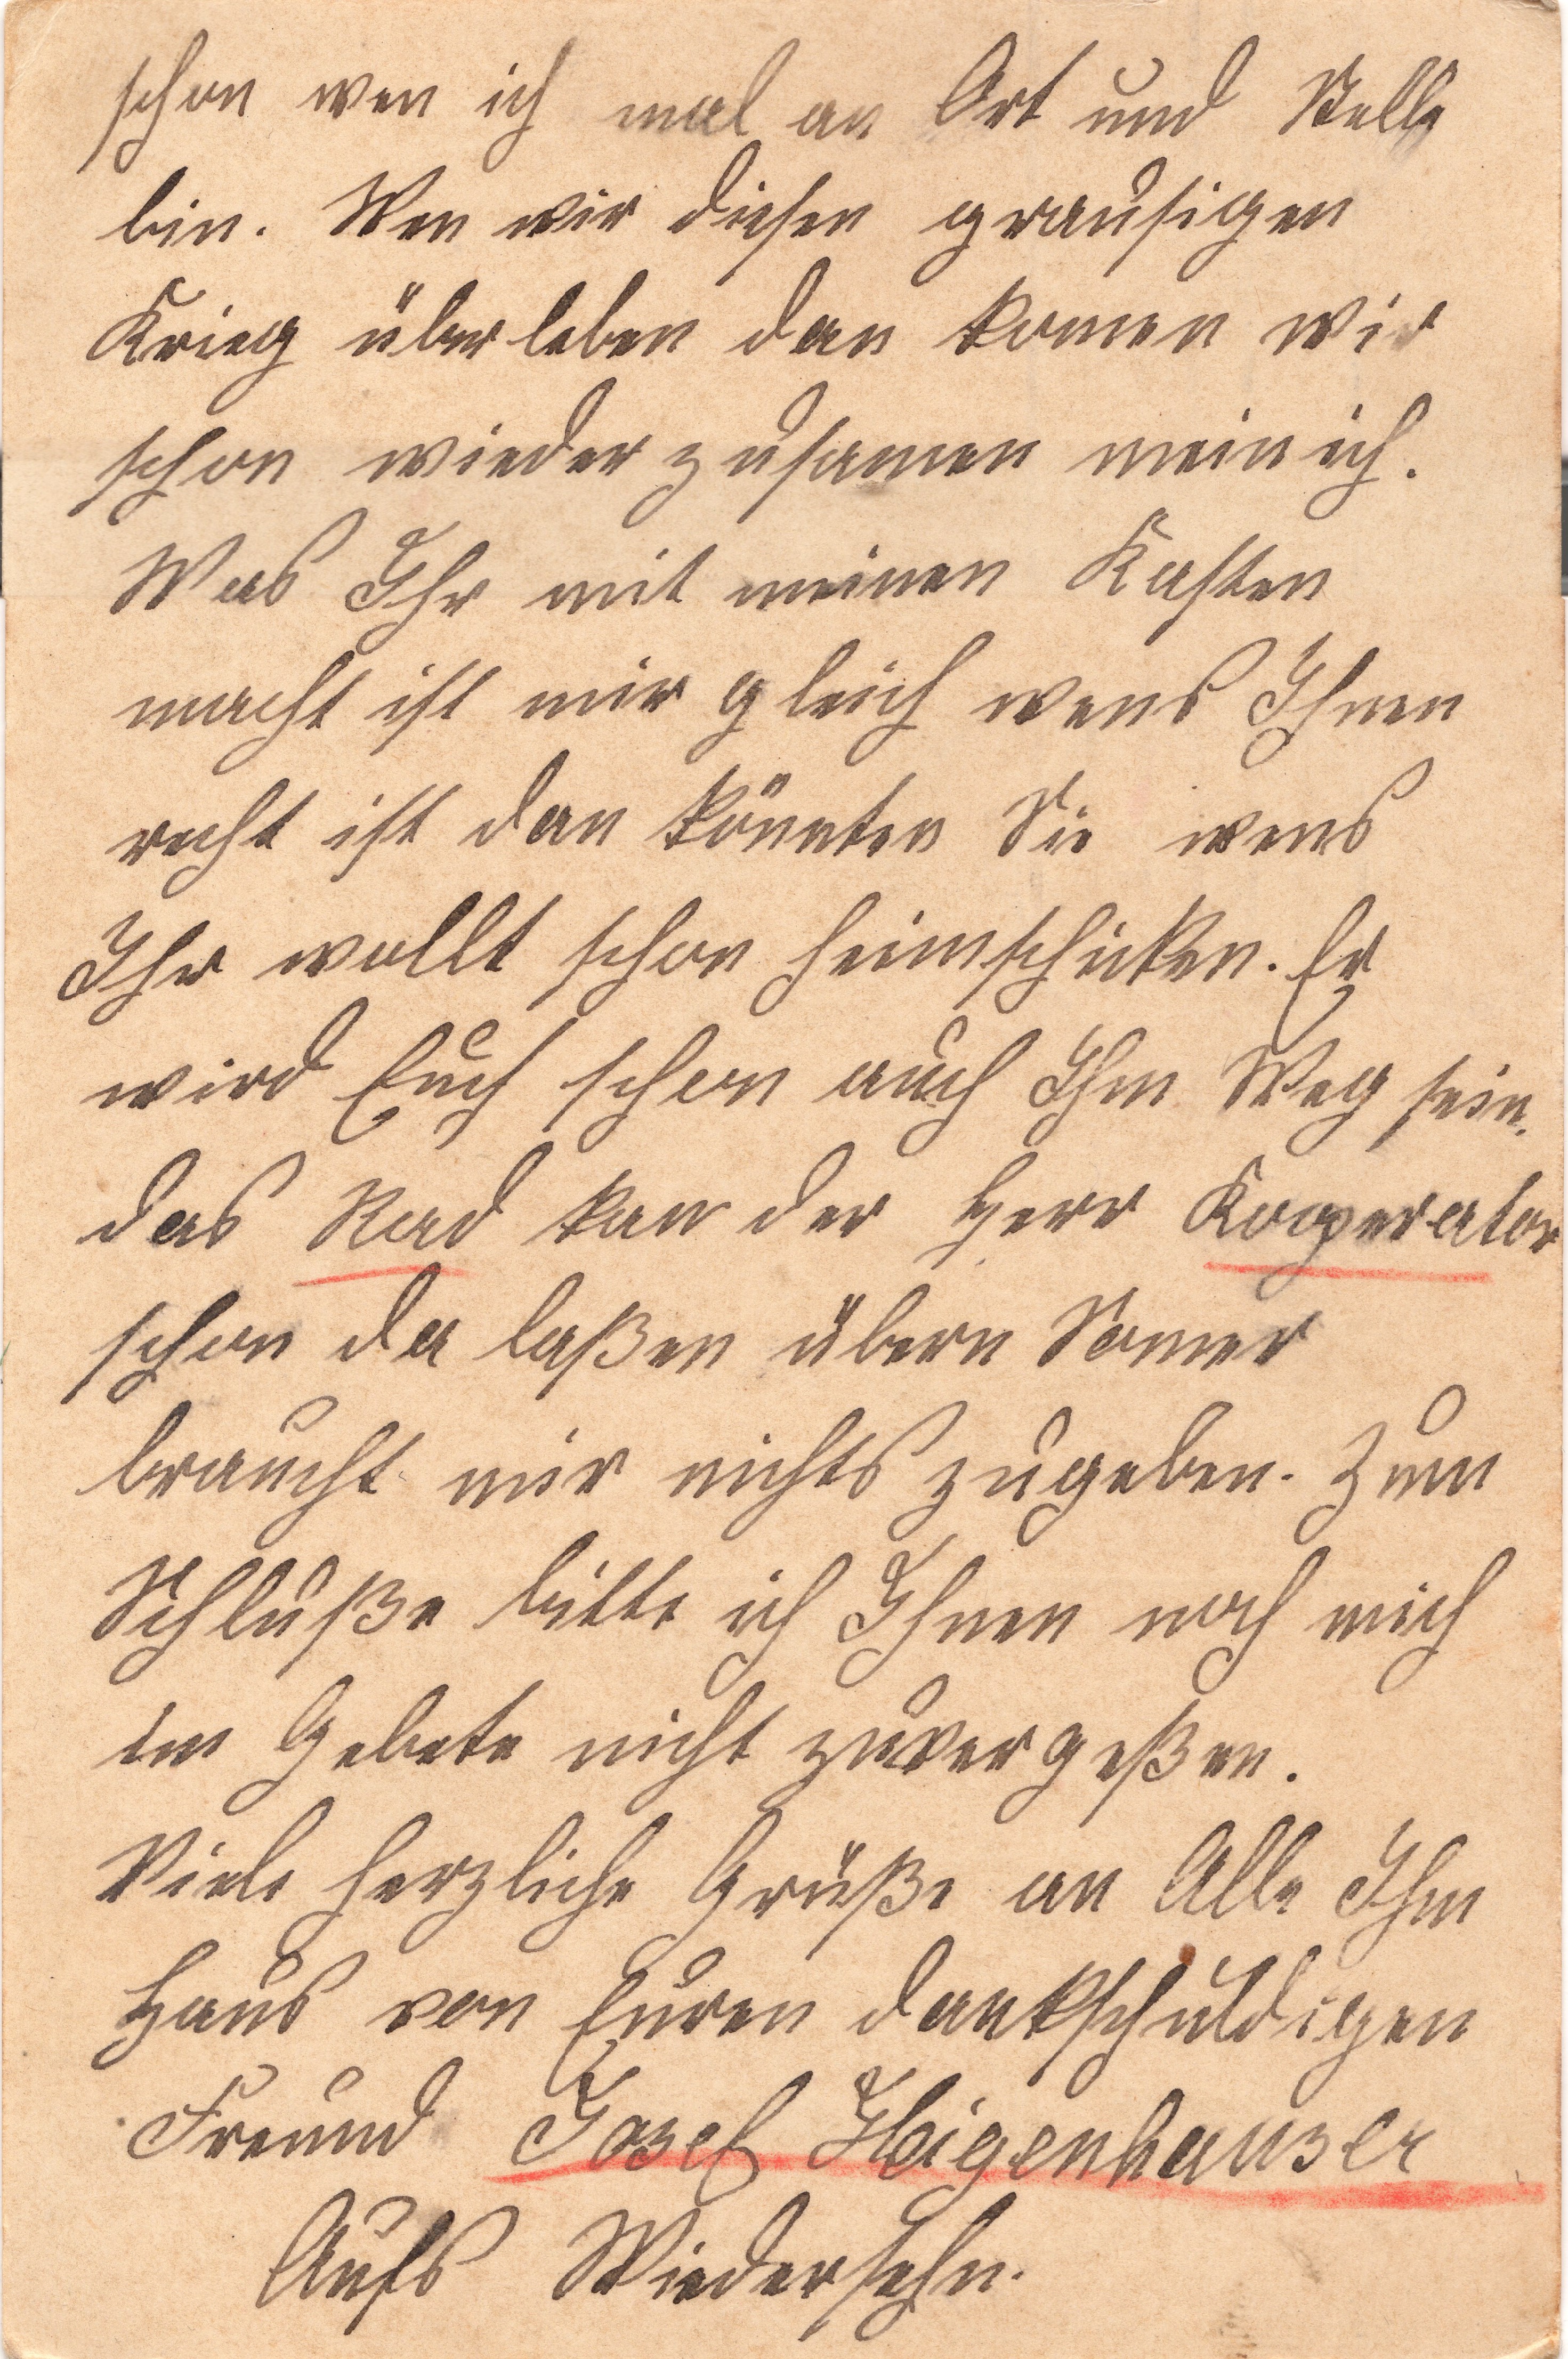 schon wen ich mal an Ort und Stelle
bin. Wen wir diesen grausigen
Krieg überleben dan komen wir
schon wieder zusamen mein ich.
Was Ihr mit meinen Kasten
macht ist mir gleich wens Ihnen
recht ist dan könnten Sie wens
Ihr wollt schon heimschicken. Er
wird Euch schon auch Ihm Weg sein.
das Rad kan der Herr Kooperator
schon da laßen übern Somer
braucht mir nichts zugeben. Zum
Schluße bitte ich Ihnen noch mich
im Gebete nicht zuvergeßen.
Viele herzliche Grüße an Alle Ihm
Haus von Euren dankschuldigen
Freund Josef Haigenhauser
Aufs Wiedersehn.